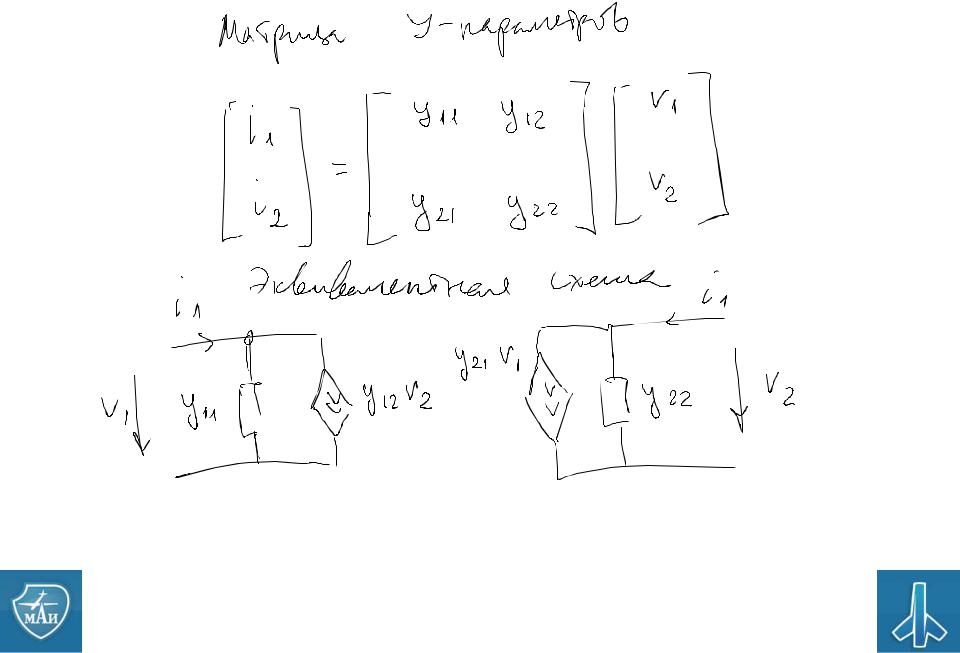 Матрица У-параметров
[i1 i2] = [y11 y12 y21 y22] [v1 v2]
Эквивалентная схема
i1 i1
v1 y11 y12 v2 y21 v1 y22 v2
МАИ